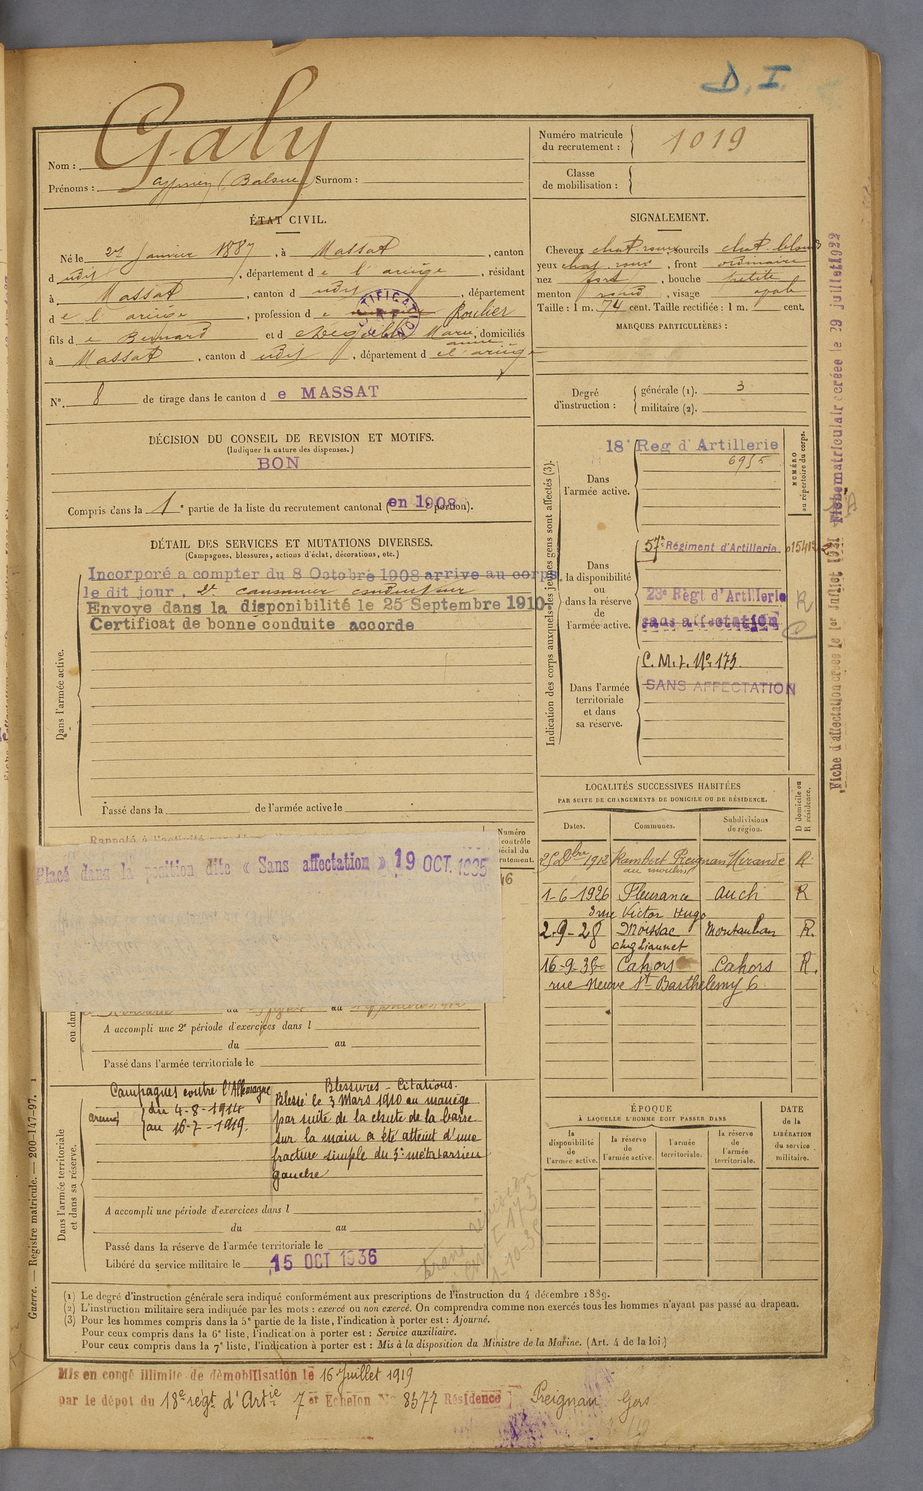 D. I.
Galy
Nom :
Prénoms : Surnom :
Numéro matricule
du recrutement : 1019
Classe
de mobilisation :
ÉTAT CIVIL.
Né le 27 Janvier 1887, à Massat, canton
d udit, département de l'ariège, résidant
à Massat, canton d udit, département
de l'ariège, profession de Roulier
fils de Bernard et d Marie anne, domiciliés
à Massat, canton d udit, département de l'ariège
N° 8 de tirage dans le canton de MASSAT
DÉCISION DU CONSEIL DE REVISION ET MOTIFS.
(Indiquer la nature des dispenses.)
BON
Compris dans la 1e partie de la liste du recrutement cantonal (en 1908 portion).
SIGNALEMENT.
Cheveux chat. roux, sourcils chat. blonds
yeux chat. roux, front ordinaire
nez fort, bouche petite
menton rond, visage ovale
Taille : 1 m. 74 cent. Taille rectifiée : 1 m. cent.
MARQUES PARTICULIÈRES :
Degré
d'instruction :
générale (1). 3
militaire (2).
DÉTAIL DES SERVICES ET MUTATIONS DIVERSES.
(Campagnes, blessures, actions d'éclat, décorations, etc.)
Dans l'armée active.
Incorporé a compter du 8 Octobre 1908 arrive au corps
le dit jour. 2e canonnier conducteur
Envoye dans la disponibilité le 25 Septembre 1910
Certificat de bonne conduite accorde
Passé dans la de l'armée active le
Indication des corps auxquels les jeunes gens sont affectés (3).
NUMÉRO
au répertoire du corps.
Dans
l'armée active.
18e Reg d'Artillerie
6955
Dans
la disponibilité
ou
dans la réserve
de
l'armée active.
57e Régiment d'Artillerie
23e Régt d'Artillerie R
sans affectation
Dans l'armée
territoriale
et dans
sa réserve.
C. M. I. No 173
SANS AFFECTATION
Fiche matriculaire créée le 29 juillet 1922
LOCALITÉS SUCCESSIVES HABITÉES
PAR SUITE DE CHANGEMENTS DE DOMICILE OU DE RÉSIDENCE.
Dates. Communes. Subdivisions de région. D domicile ou R résidence.
25 Xbre 1912 Preignan Mirande R
1-6-1926 Fleurance auch R
3 rue Victor Hugo
2-9-28 Moissac Montauban R.
16-9-35 Cahors Cahors R.
rue Neuve St Barthelemy 6
Placé dans la position dite « Sans affectation » 19 OCT. 1925
A accompli une 2e période d'exercices dans l
du au
Passé dans l'armée territoriale le
Dans l'armée territoriale
et dans sa réserve.
Campagnes contre l'Allemagne
du 4-8-1914
au 16-7-1919.
Blessures - Citations.
Blessé le 3 Mars 1910 au manège
par suite de la chute de la barre
sur la main a été atteint d'une
fracture simple du 3e métatarsien
gauche
A accompli une période d'exercices dans l
du au
Passé dans la réserve de l'armée territoriale le
Libéré du service militaire le 15 OCT 1936
ÉPOQUE
À LAQUELLE L'HOMME DOIT PASSER DANS
la disponibilité de l'armée active.
la réserve de l'armée active.
l'armée territoriale.
la réserve de l'armée territoriale.
DATE
de la
LIBÉRATION
du service
militaire.
Guerre. — Registre matricule. — 200-147-97. 1
(1) Le degré d'instruction générale sera indiqué conformément aux prescriptions de l'instruction du 4 décembre 1889.
(2) L'instruction militaire sera indiquée par les mots : exercé ou non exercé. On comprendra comme non exercés tous les hommes n'ayant pas passé au drapeau.
(3) Pour les hommes compris dans la 5e partie de la liste, l'indication à porter est : Ajourné.
Pour ceux compris dans la 6e liste, l'indication à porter est : Service auxiliaire.
Pour ceux compris dans la 7e liste, l'indication à porter est : Mis à la disposition du Ministre de la Marine. (Art. 4 de la loi.)
Mis en congé illimité de démobilisation le 16 Juillet 1919
par le dépot du 18e regt d'Artie 7 et Echelon No 8577 Résidence Preignan Gers